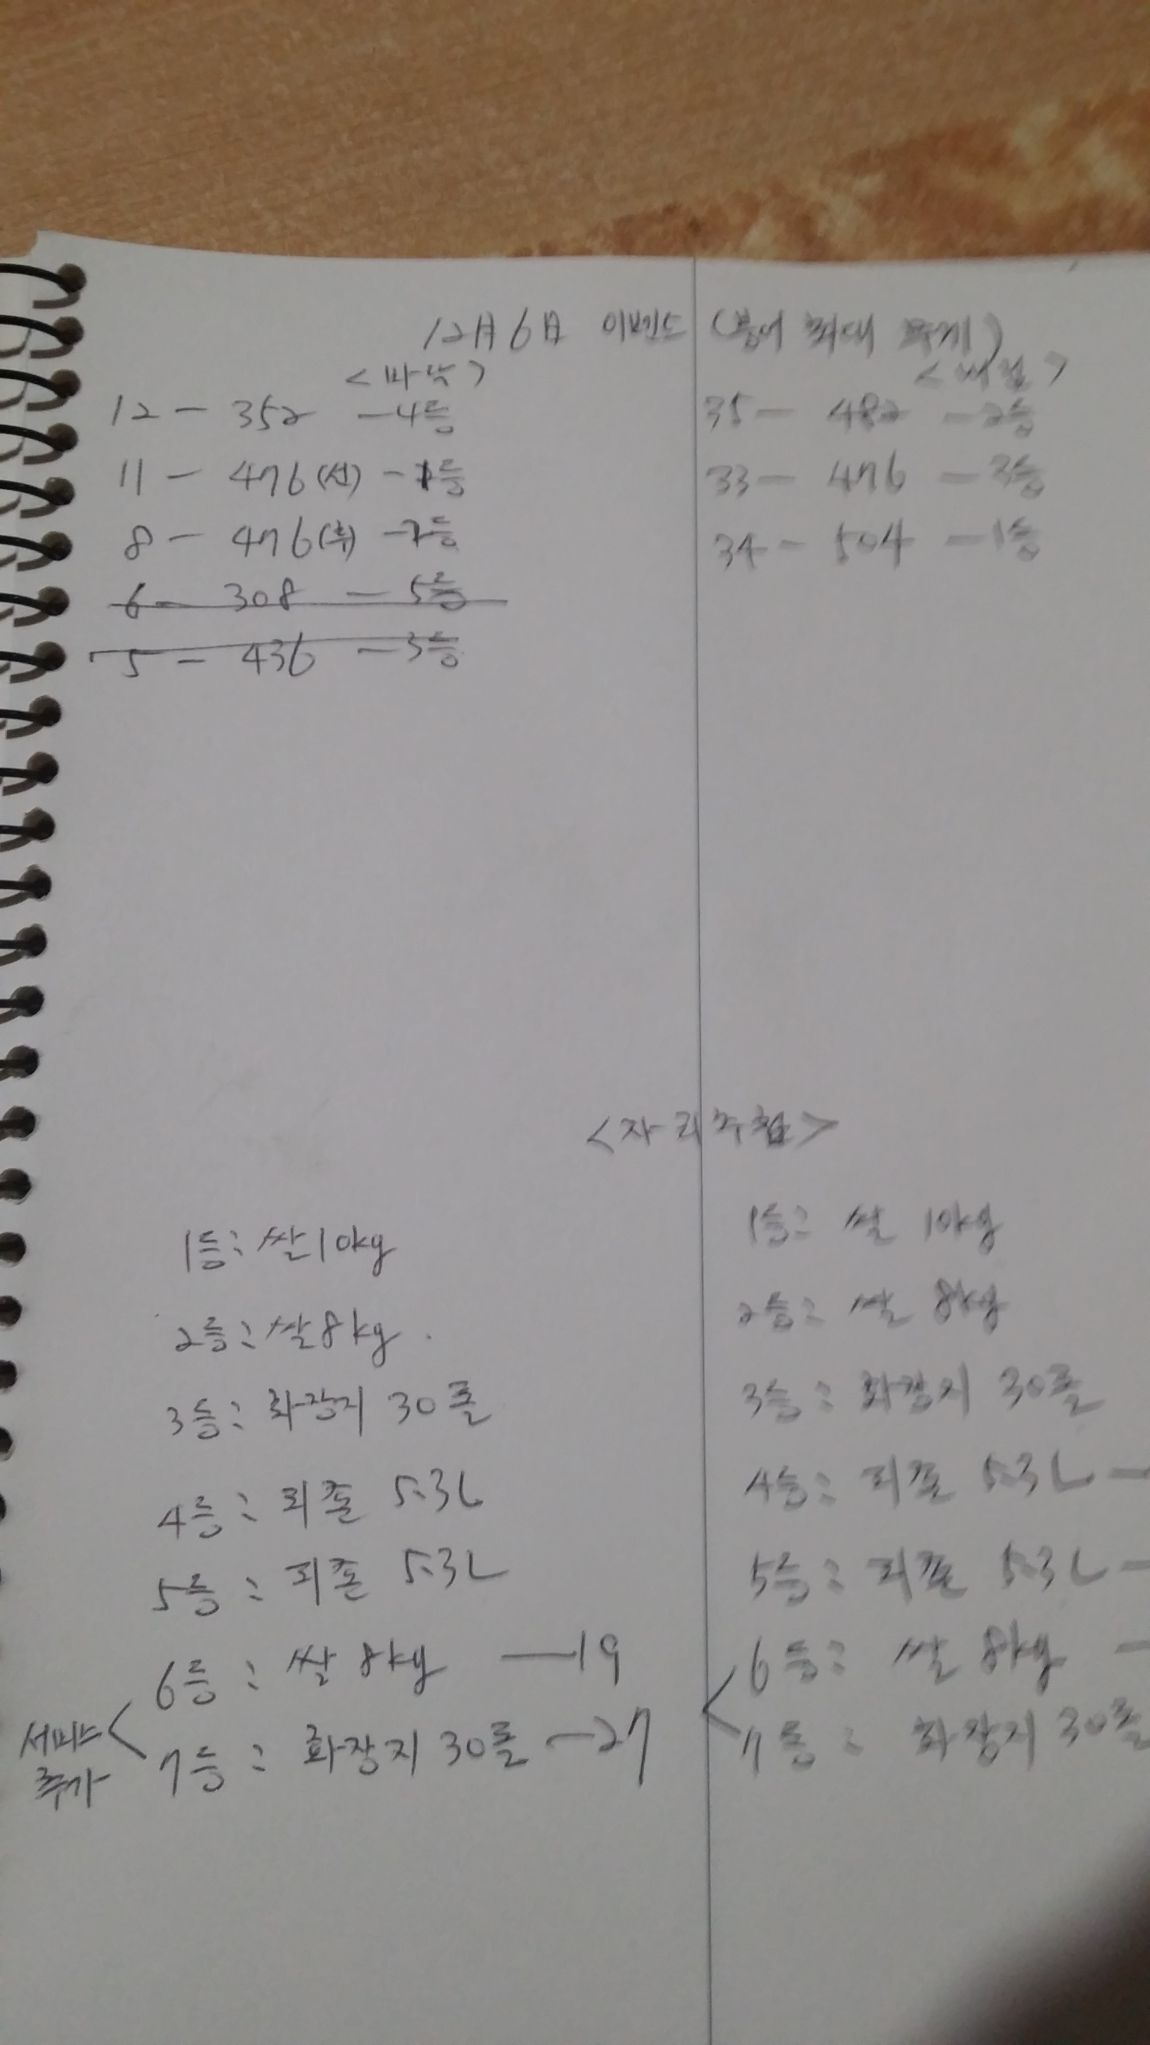 12月6日 이벤트 (붕어 최대 무게)
<바닥>
12 - 352 - 4등
11 - 476(선) - 1등
8 - 476(후) - 2등
6 - 308 - 5등
5 - 436 - 3등
35 - 482 - 2등
33 - 476 - 3등
34 - 504 - 1등
<자리추첨>
1등: 쌀10kg
2등: 쌀8kg
3등: 화장지 30롤
4등: 피죤 5.3L
5등: 피죤 5.3L
서비스 추가
6등: 쌀 8kg - 19
7등: 화장지 30롤 - 27
1등: 쌀 10kg
2등: 쌀 8kg
3등: 화장지 30롤
4등: 피죤 5.3L -
5등: 피죤 5.3L -
6등: 쌀 8kg -
7등: 화장지 30롤